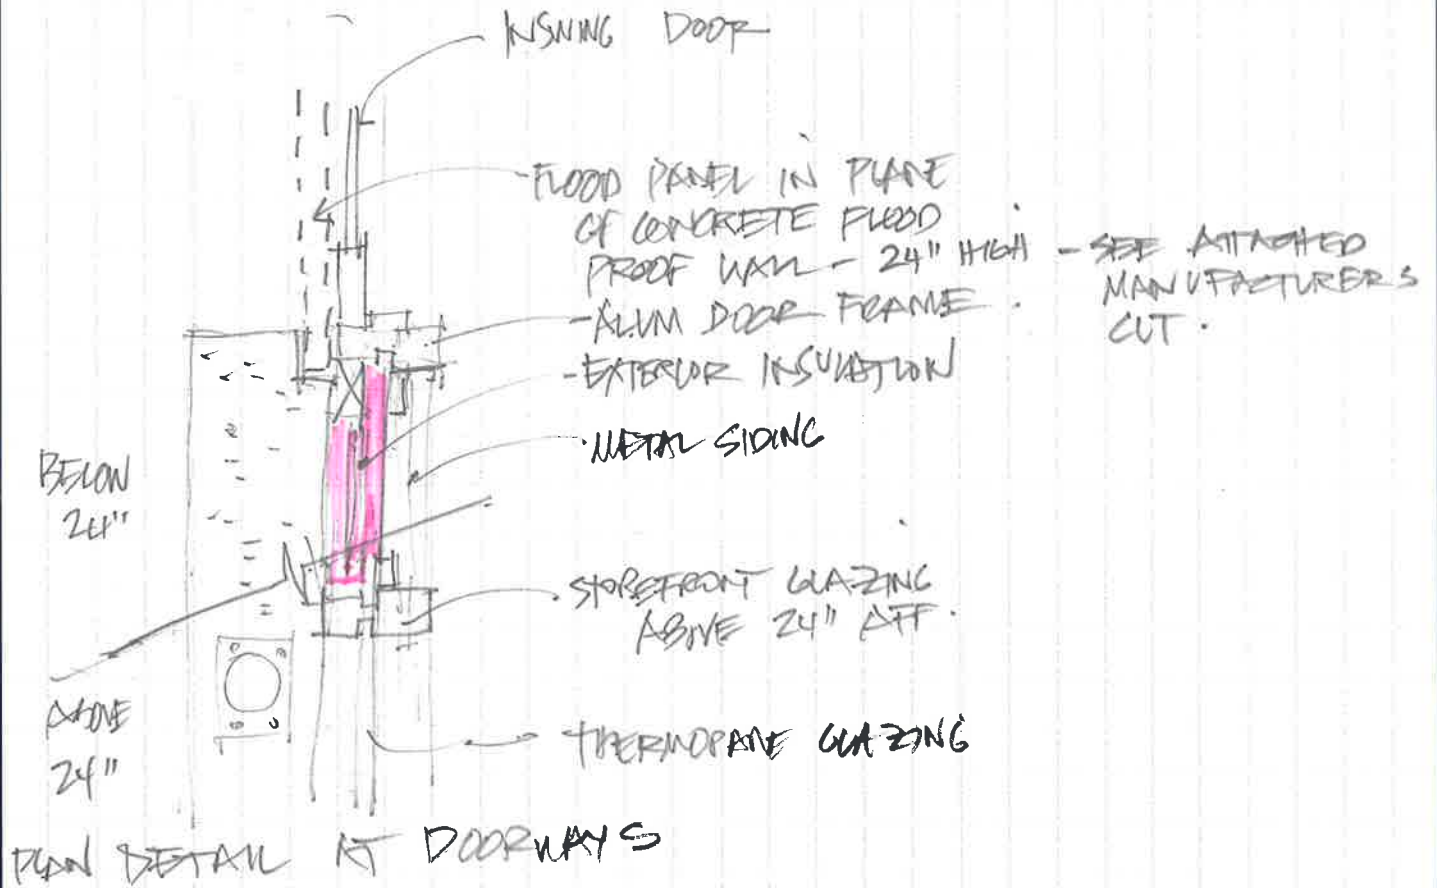 INSWING DOOR
FLOOD PANEL IN PLANE
OF CONCRETE FLOOD
PROOF WALL - 24" HIGH - SEE ATTACHED
MANUFACTURERS
CUT.
- ALUM DOOR FRAME.
- EXTERIOR INSULATION
METAL SIDING
BELOW
24"
STOREFRONT GLAZING
ABOVE 24" AFF.
ABOVE
24"
THERMOPANE GLAZING
PLAN DETAIL AT DOORWAYS